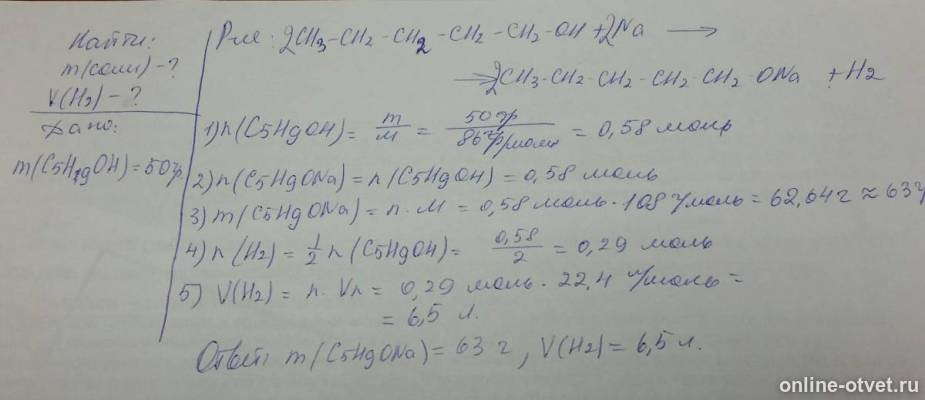 Найти:
m(соли) - ?
V(H2) - ?
Дано:
m(C5H9OH) = 50гр
Р-ие: 2CH3-CH2-CH2-CH2-CH2-OH + 2Na →
→ 2CH3-CH2-CH2-CH2-CH2-ONa + H2
1) n(C5H9OH) = m/M = 50гр/86гр/моль = 0,58 моль
2) n(C5H9ONa) = n(C5H9OH) = 0,58 моль
3) m(C5H9ONa) = n·M = 0,58 моль · 108 г/моль = 62,64г ≈ 63г
4) n(H2) = 1/2 n(C5H9OH) = 0,58/2 = 0,29 моль
5) V(H2) = n·Vn = 0,29 моль · 22,4 л/моль =
= 6,5 л.
Ответ: m(C5H9ONa) = 63 г, V(H2) = 6,5 л.
online-otvet.ru